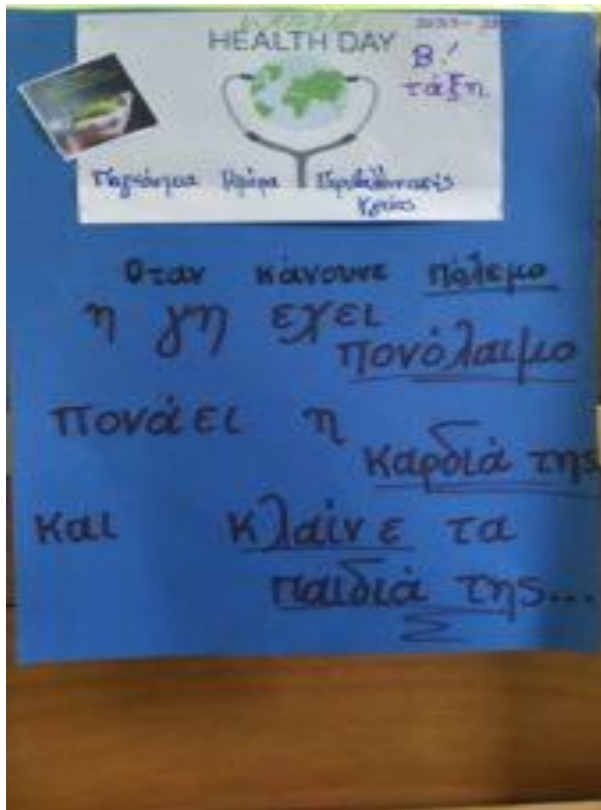 HEALTH DAY
Β!
τάξη
Παγκόσμια Ημέρα Περιβαλλοντικής
Υγείας
Όταν κάνουνε πόλεμο
η γη έχει
πονόλαιμο
πονάει η
καρδιά της
και κλαίνε τα
παιδιά της...